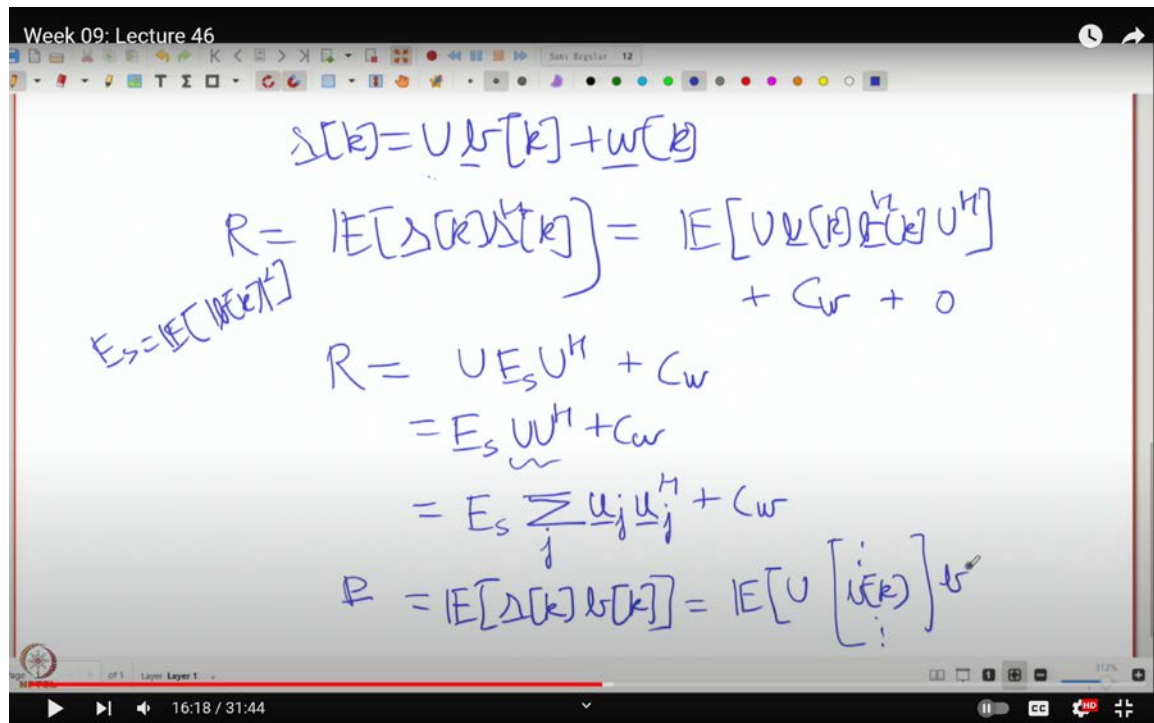 Week 09: Lecture 46
Sans Regular 12
s[k] = U b[k] + w[k]
R = IE[s[k]s^H[k]] = IE[U b[k] b^H[k] U^H]
+ C_w + 0
E_s = IE[|b[k]|^2]
R = U E_s U^H + C_w
= E_s UU^H + C_w
= E_s ∑_j u_j u_j^H + C_w
= IE[s[k] b[k]] = IE[U [ ⋮ b[k] ⋮ ] b
of 1 Layer Layer 1
312%
NPTEL
16:18 / 31:44
CC HD